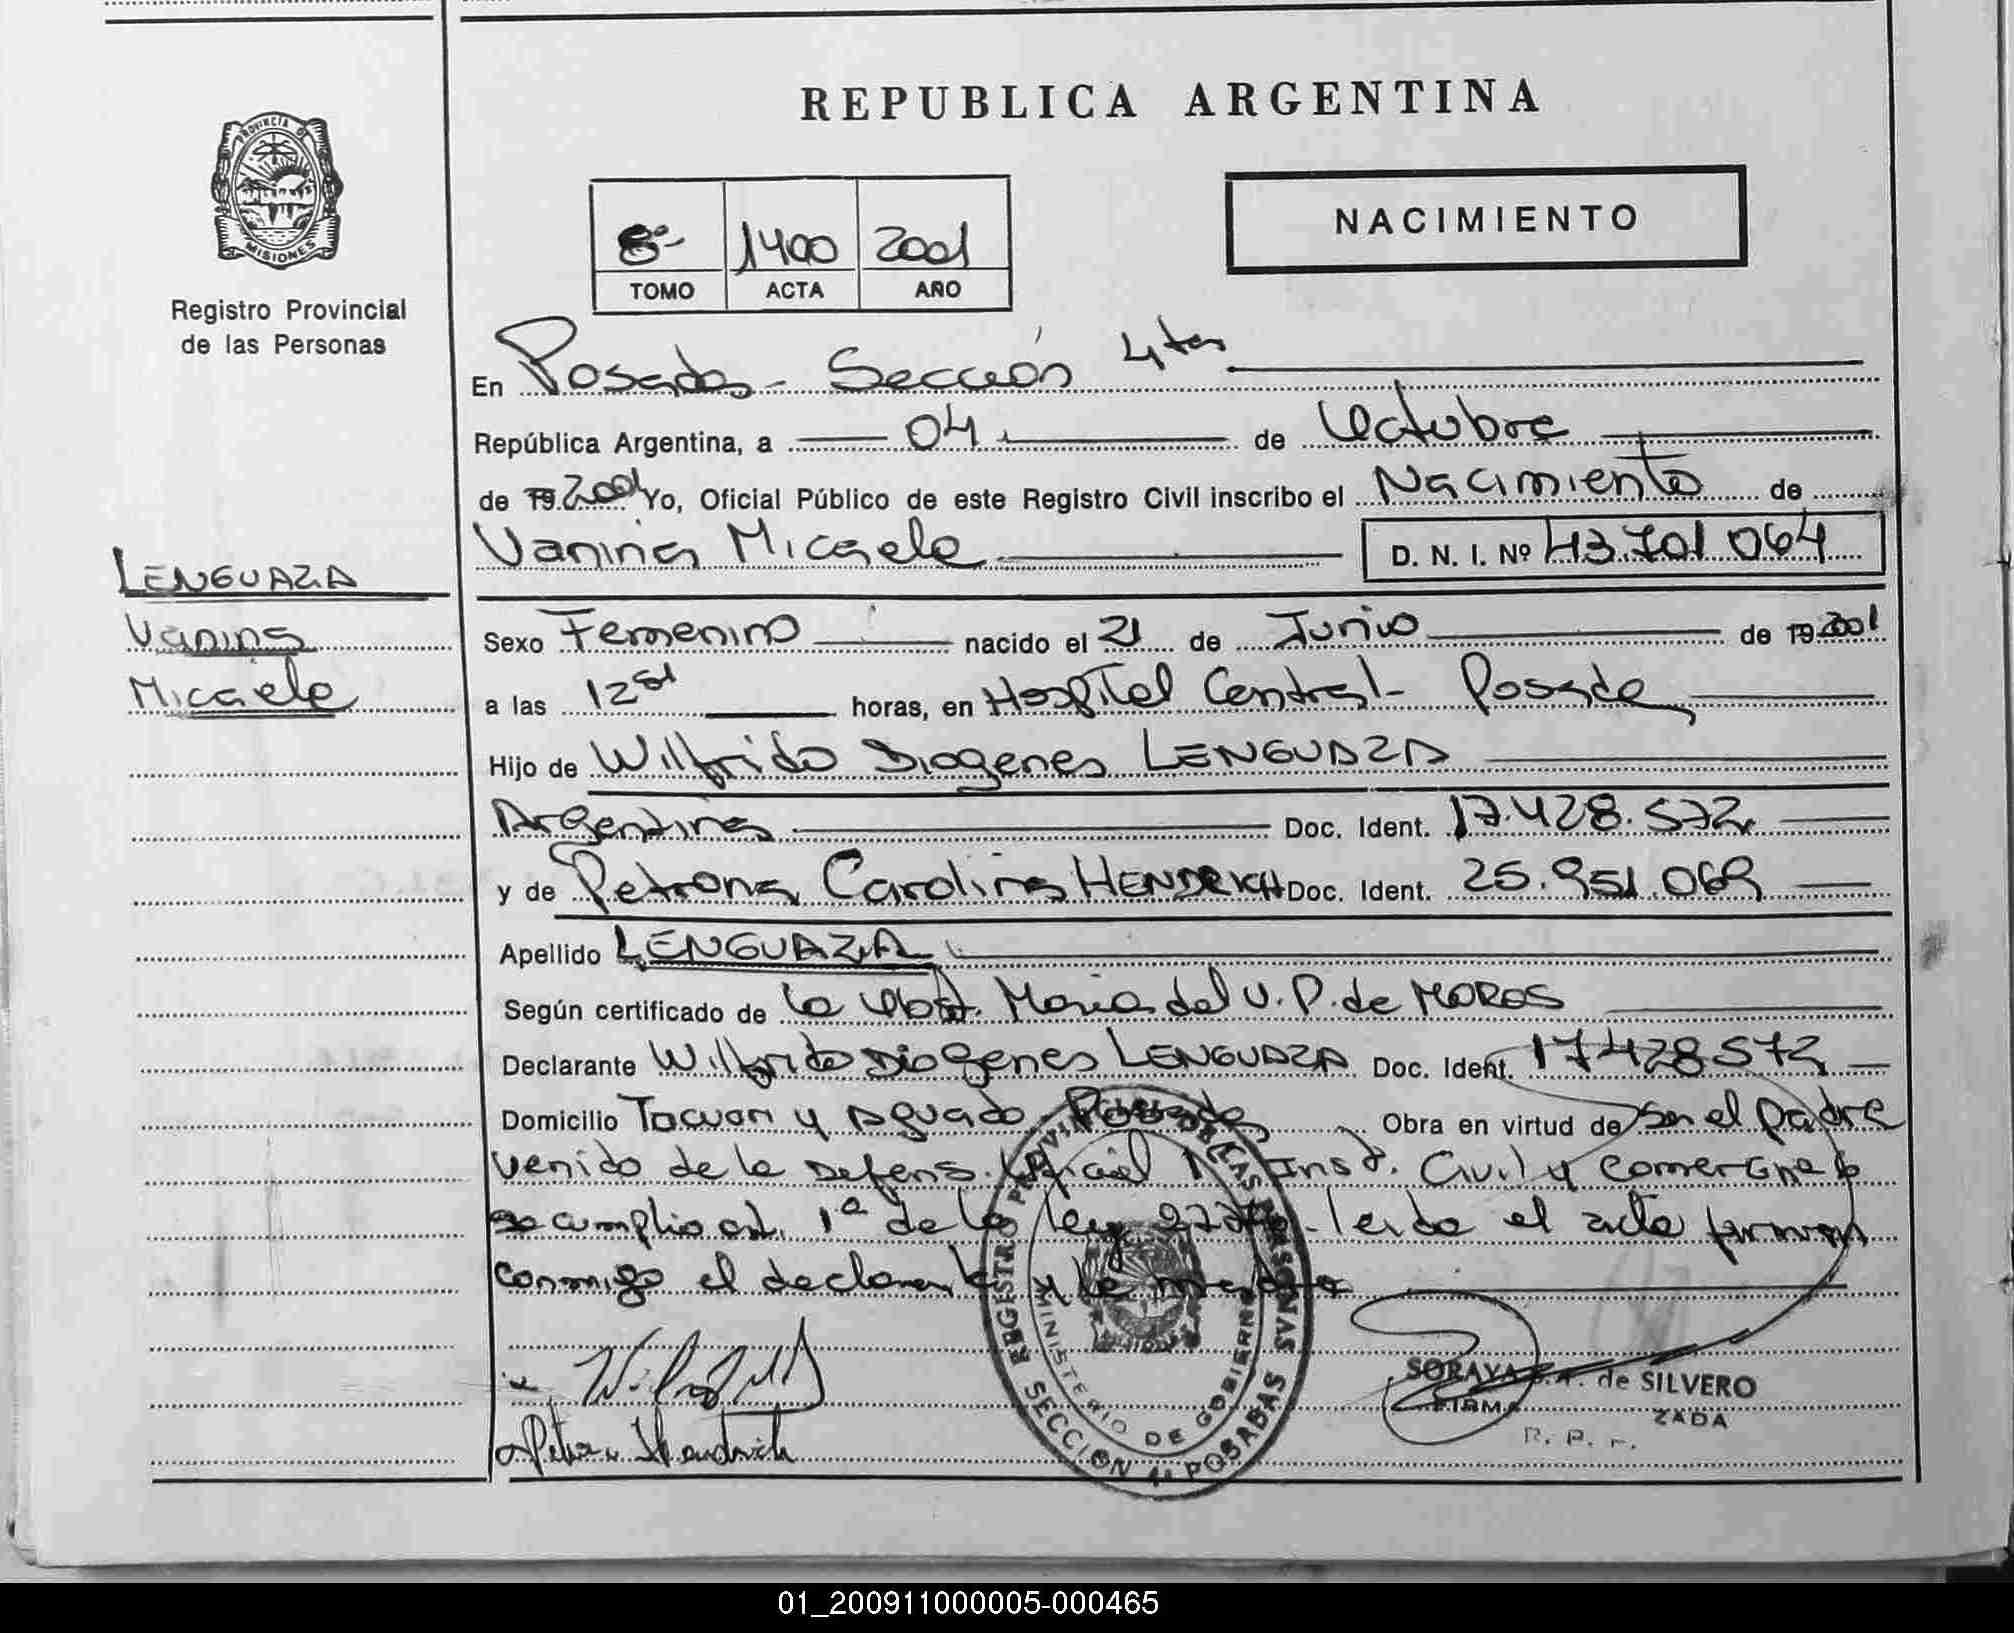 REPUBLICA ARGENTINA
PROVINCIA DE
MISIONES
Registro Provincial
de las Personas
8º- 1400 2001
TOMO ACTA AÑO
NACIMIENTO
En Posadas - Sección 4ta
República Argentina, a 04 de Octubre
de 19 2001 Yo, Oficial Público de este Registro Civil inscribo el Nacimiento de
Vanina Micaela D. N. I. Nº 43.701.064
LENGUAZA
Vanina
Micaela
Sexo Femenino nacido el 21 de Junio de 19 2001
a las 12 horas, en Hospital Central - Posadas
Hijo de Wilfrido Diogenes LENGUAZA
Argentina Doc. Ident. 17.428.572
y de Petrona Carolina HENDRICH Doc. Ident. 25.951.069
Apellido LENGUAZA
Según certificado de la Obst. Maria del V. P. de MOROS
Declarante Wilfrido Diogenes LENGUAZA Doc. Ident. 17428572
Domicilio Tacuari y Aguado - Posadas Obra en virtud de Ser el padre
venido de la Defens. Oficial Inst. Civil y Comercial
se cumplio art. 1ª de la ley leida el acta firman
conmigo el declarante y la madre
REGISTRO PROVINCIAL DE LAS PERSONAS
MINISTERIO DE GOBIERNO
SECCION 4ª POSADAS
SORAYA de SILVERO
FIRMA ZADA
R. P. P.
Hendrich
01_200911000005-000465